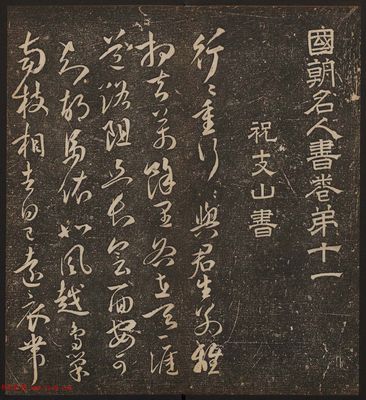 國朝名人書卷弟十一
祝支山書
行〻重行〻與君生別離
相去萬餘里各在天一涯
道路阻且長會面安可
知胡馬依北風越鳥巢
南枝相去日已遠衣帶